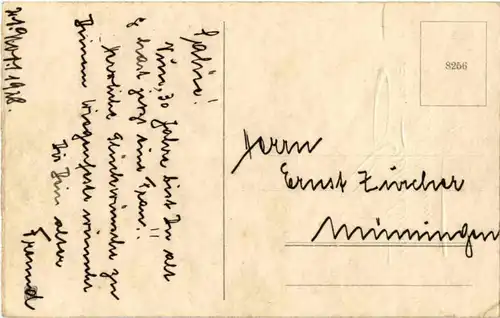 21. Nov. 1918.
Salü!
Nun, 30 Jahre bist Du alt
& hast jetzt eine Frau!!
herzliche Glückwünsche zu
Deinem Wiegenfeste wünscht
Dir Dein alter
Freund
8256
Herrn
Ernst Zürcher
Münsingen